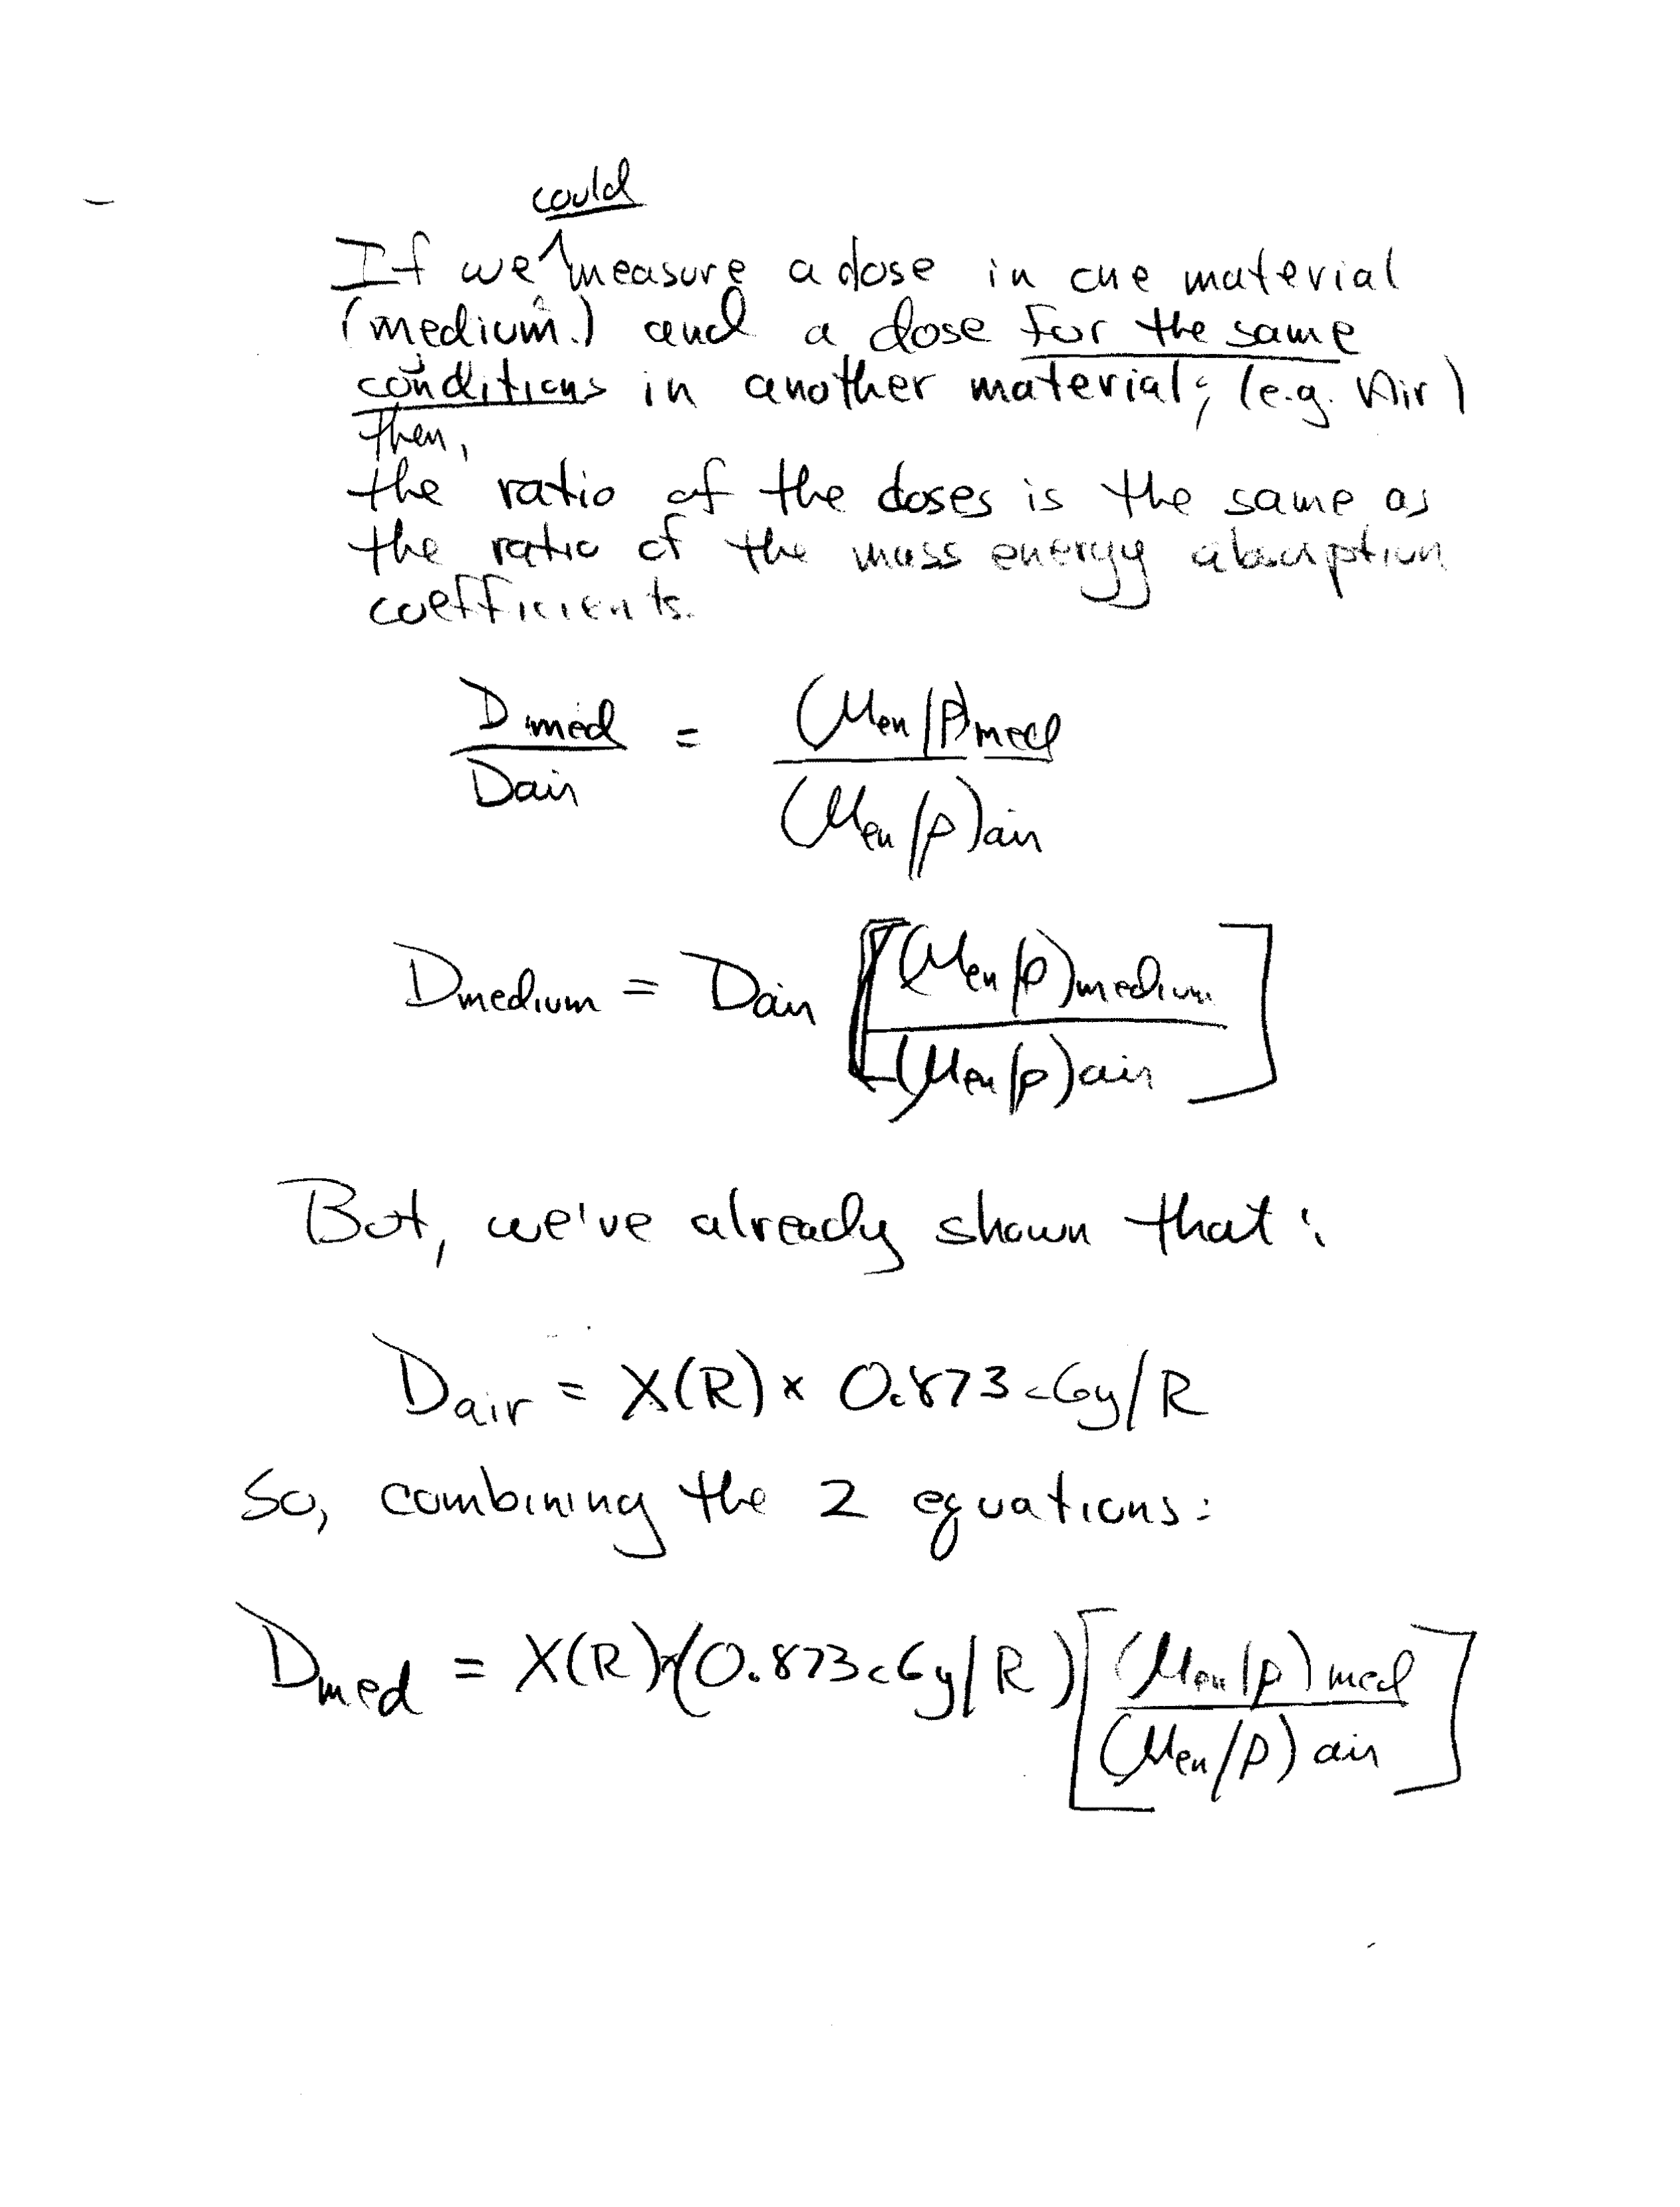 could
If we ^ measure a dose in one material
(medium) and a dose for the same
conditions in another material, (e.g. Air)
then,
the ratio of the doses is the same as
the ratio of the mass energy absorption
coefficients.
Dmed / Dair = (μen/ρ)med / (μen/ρ)air
Dmedium = Dair [(μen/ρ)medium / (μen/ρ)air]
But, we've already shown that:
Dair = X(R) × 0.873 cGy/R
So, combining the 2 equations:
Dmed = X(R) × (0.873 cGy/R) [(μen/ρ)med / (μen/ρ)air]